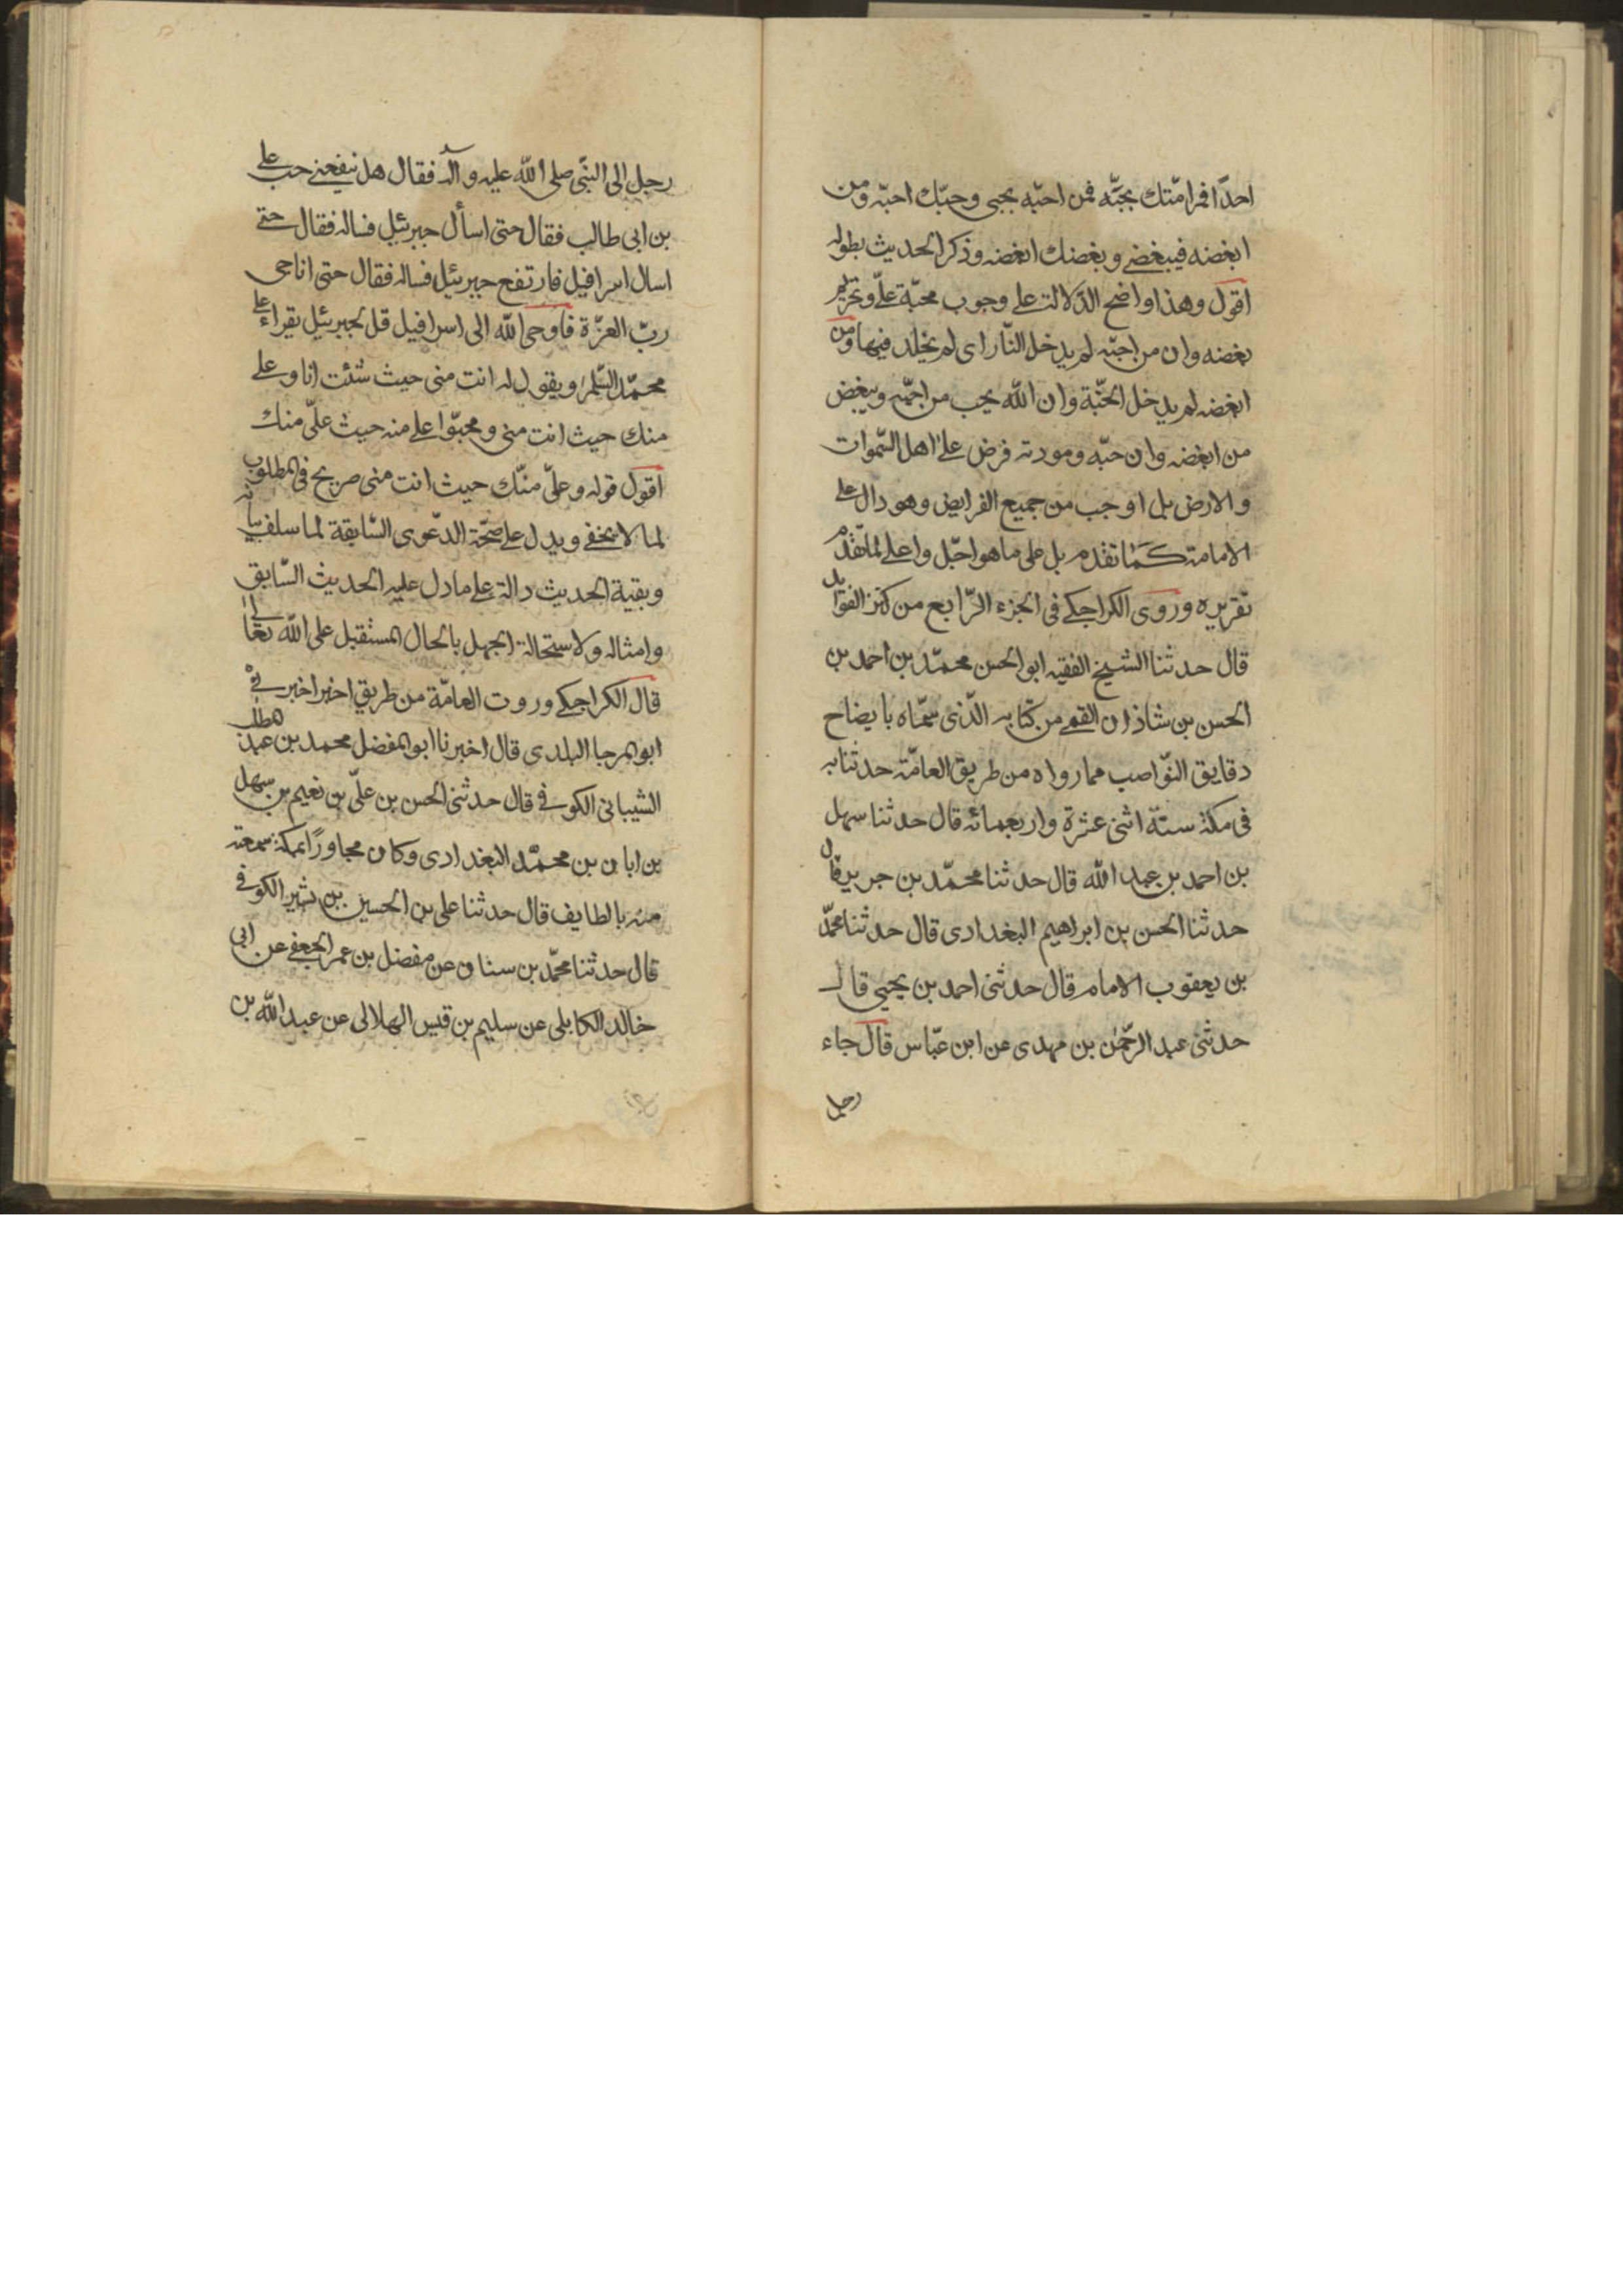 احدًا من امّتك يحبّه فمن احبّه يحبى وحبّك احبّه ومن
ابغضه فيبغضى وبغضك ابغضه وذكر الحديث بطوله
اقول وهذا واضح الدّلالة على وجوب محبّة علىّ وتحريم
بغضه وان من احبّه لم يدخل النّار اى لم يخلد فيها ومن
ابغضه لم يدخل الجنّة وان الله يحب من احبّه ويبغض
من ابغضه وان حبّه ومودته فرض على اهل السّموات
والارض بل اوجب من جميع الفرايض وهو دال على
الامامة كما تقدم بل على ما هو اجّل واعلى لما تقدم
تقريره وروى الكراجكى فى الجزء الرّابع من كنز الفوايد
قال حدثنا الشيخ الفقيه ابوالحسن محمّد بن احمد بن
الحسن بن شاذان القمى من كتابه الّذى سمّاه بايضاح
دقايق النّواصب مما رواه من طريق العامّة حدثنا به
فى مكة سنة اثنى عشرة واربعمائه قال حدثنا سهل
بن احمد بن عبد الله قال حدثنا محمّد بن جرير قال
حدثنا الحسن بن ابراهيم البغدادى قال حدثنا محمّد
بن يعقوب الامام قال حدثنى احمد بن يحيى قال
حدثنى عبد الرّحمن بن مهدى عن ابن عبّاس قال جاء
رجل
رجل الى النبّى صلى الله عليه وآله فقال هل ينفعنى حب على
بن ابى طالب فقال حتى اسأل جبرئيل فساله فقال حتى
اسال اسرافيل فارتفع جبرئيل فساله فقال حتى اناجى
ربّ العزّة فاوحى الله الى اسرافيل قل لجبرئيل يقراء على
محمّد السّلم ويقول له انت منى حيث شئت انا وعلى
منك حيث انت منى ومحبّوا على منه حيث علىّ منك
اقول قوله وعلىّ منّك حيث انت منى صريح فى المطلوب
لما لا يخفى ويدل على صحّة الدّعوى السّابقة لما سلف بيانه
وبقية الحديث دالة على مادل عليه الحديث السّابق
وامثاله ولاستحالة الجهل بالحال المستقبل على الله تعالى
قال الكراجكى وروت العامّة من طريق اخر اخبرنى
ابوالمرجا البلدى قال اخبرنا ابوالمفضل محمد بن عبد المطلب
الشيبانى الكوفى قال حدثنى الحسن بن علىّ بن نعيم بن سهل
بن ابان بن محمّد البغدادى وكان مجاورًا بمكة سمعته
منه بالطايف قال حدثنا على بن الحسين بن بشير الكوفى
قال حدثنا محمّد بن سنان عن مفضل بن عمر الجعفى عن ابى
خالد الكابلى عن سليم بن قيس الهلالى عن عبد الله بن